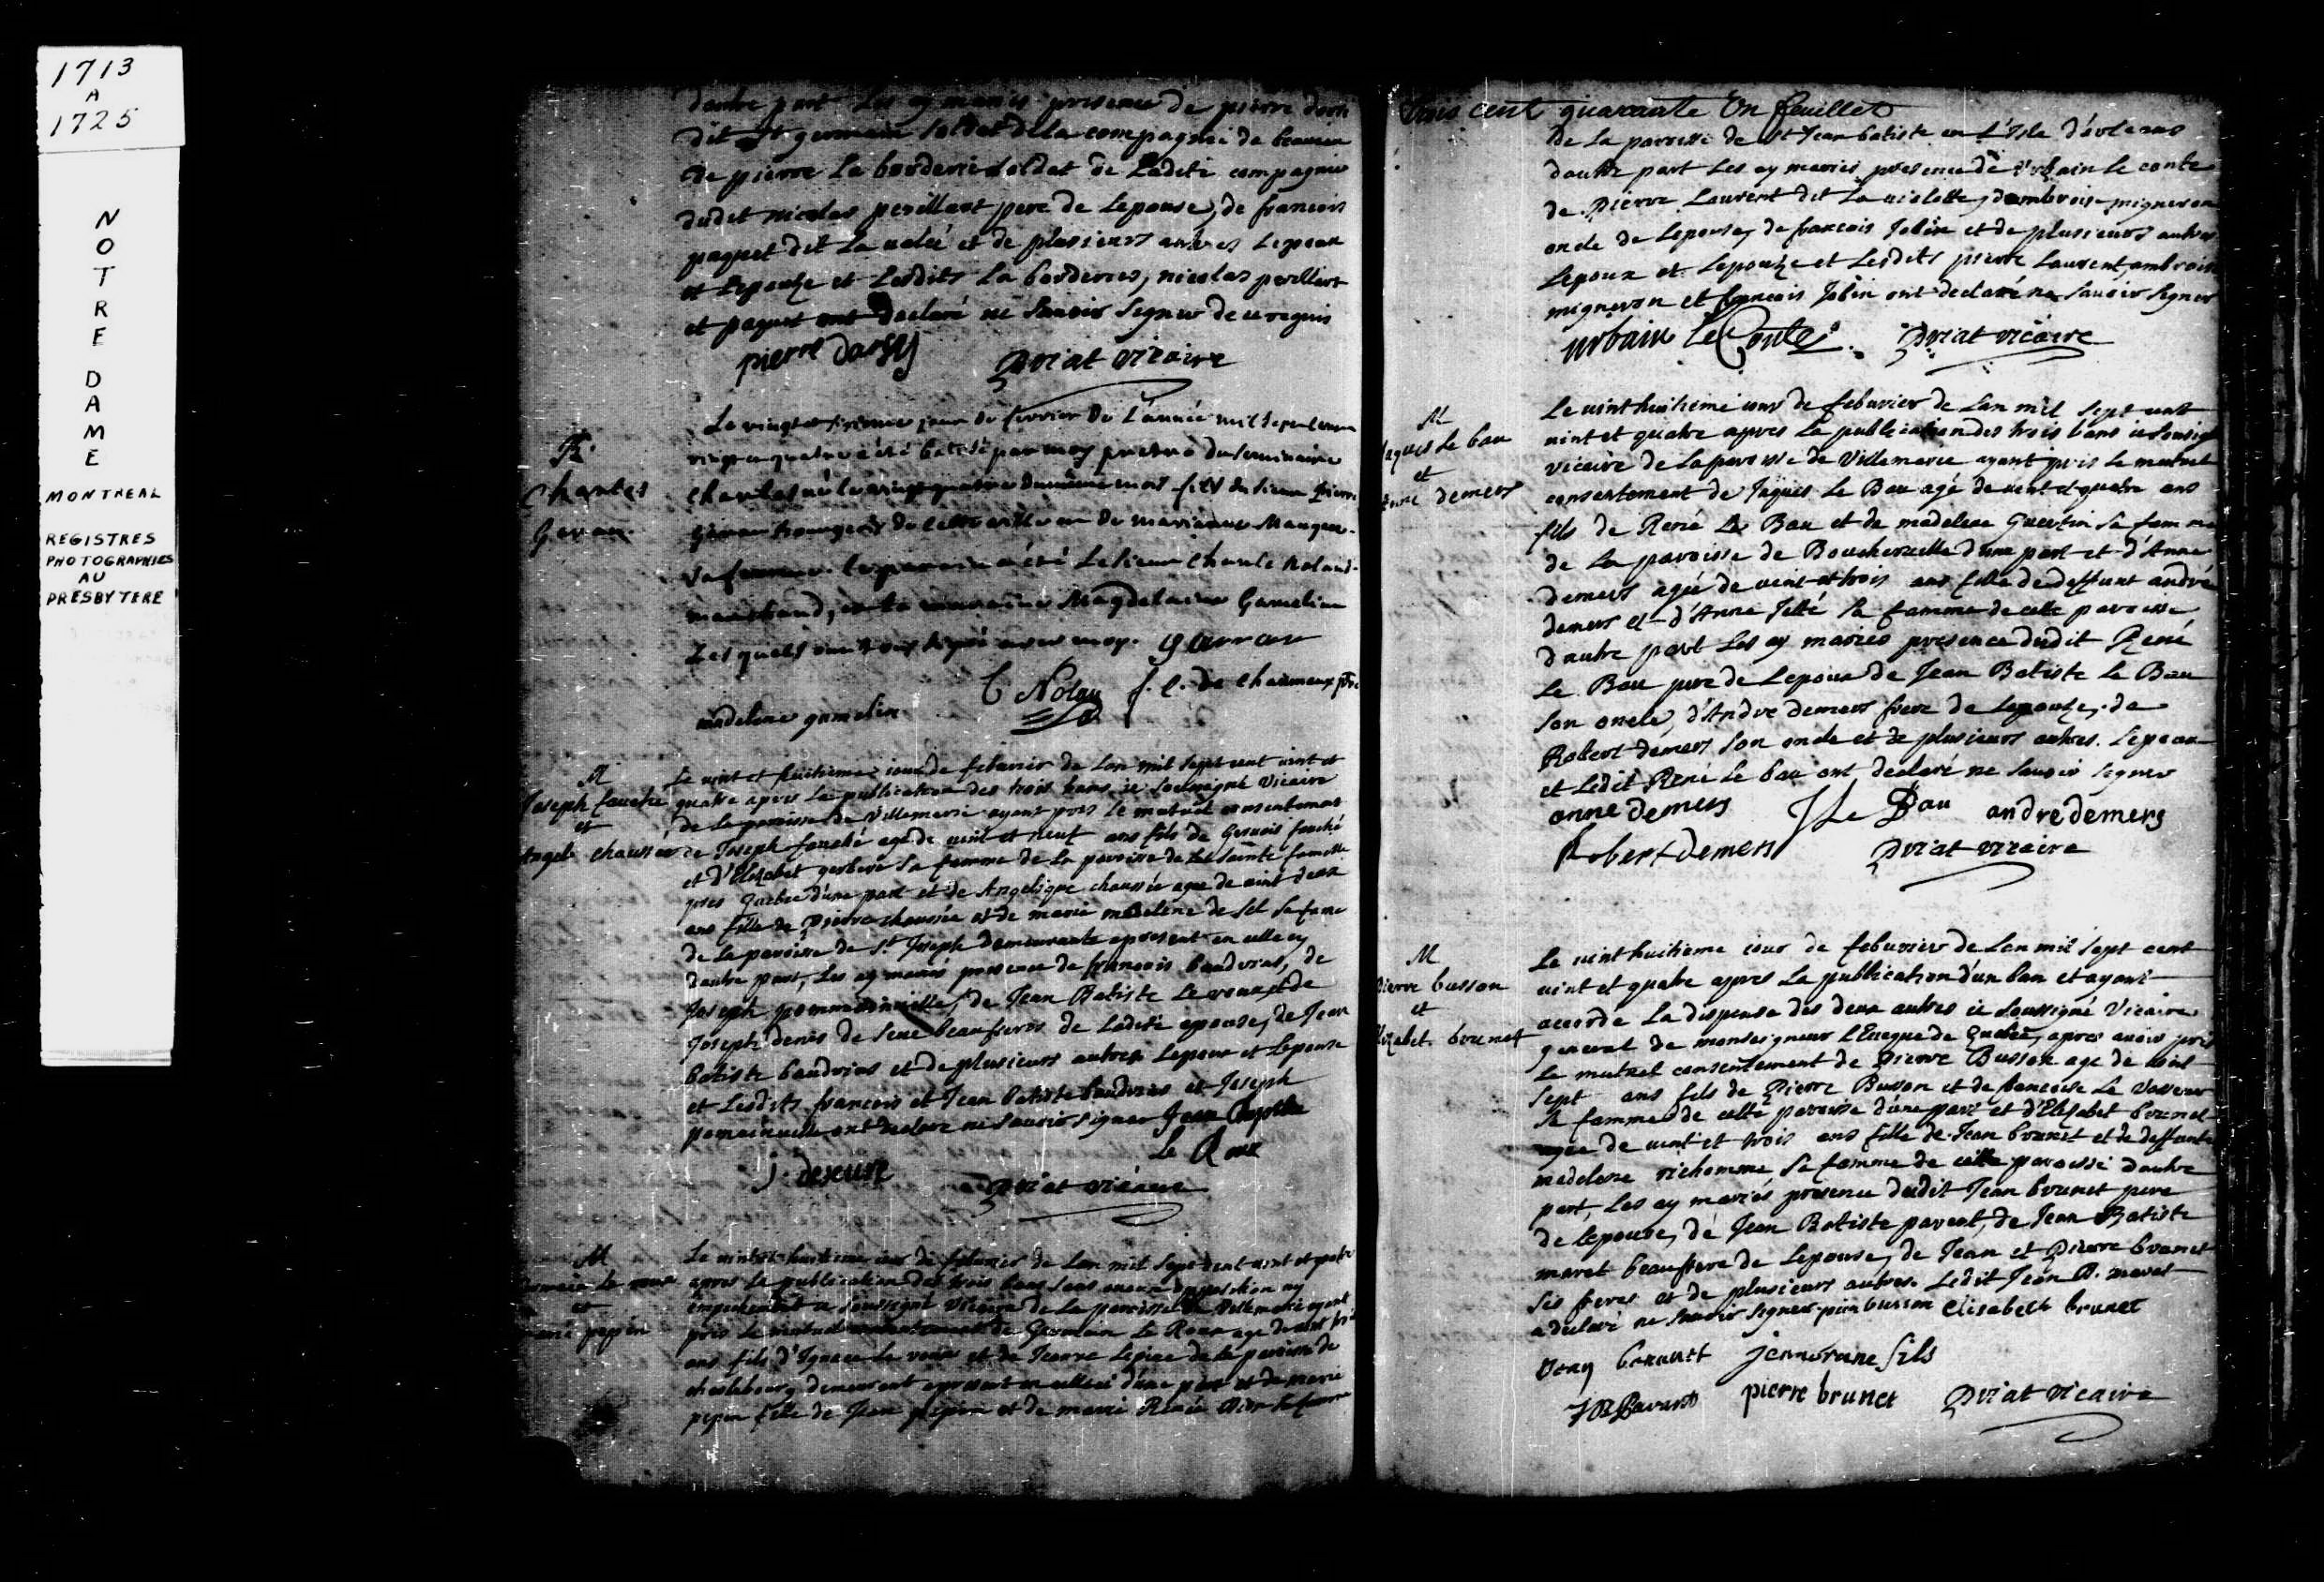 1713
A
1725
NOTRE DAME
MONTREAL
REGISTRES
PHOTOGRAPHIES
AU
PRESBYTERE
dautre part Les ay mariés presence de pierre
dit St germain soldat de la compagnie de
de pierre La borderie soldat de Ladite compagnie
dudit nicolas perillart pere de Lepouse, de francois
paquet dit La et de plusieurs autres Lepoux
et Lepouze et Lesdits La borderies, nicolas perillart
et paquet ont declaré ne Savoir Signer de ce requis
pierre
Priat vicaire
B.
Charles
Le vingt jour de fevrier de L'année mil sept cent
vingt quatre a été batisé par moy pretre du Seminaire
Charles né le vingt du même mois fils du Sieur pierre
bourgeois de cette ville et de marianne
Sa femme. le parain a été Le Sieur Charle
marchand, et la maraine Magdelaine Gamelin
Lesquels ont signé avec moy.
C Nolan f. C. de Chaumaux ptre
madelene gamelin
M
Joseph fouché
et
chaussee
Le vint et huitieme iour de feburier de Lan mil sept cent vint et
quatre apres La publication des trois bans ie soussigné Vicaire
de La paroisse de Villemarie ayant pris le mutuel consentement
de Joseph fouché agé de vint et neuf ans fils de Gervais fouché
et d'Elizabet gerbere Sa femme de La paroisse de La Sainte famille
pres Quebec d'une part et de Angelique chaussée agee de vint deux
ans fille de Pierre chaussée et de marie madelene de Sel Sa femme
de La paroisse de St Joseph demeurante apresent en celle cy
dautre part, Les ay mariés presence de francois baudrias, de
Joseph, de Jean Batiste Le roux, de
Joseph denis de Seue beaufreres de Ladite epouse, de Jean
batiste baudrias et de plusieurs autres Lepoux et Lepouse
et Lesdits francois et Jean batiste baudrias et Joseph
ont declaré ne Savoir signer Jean
Le Roux
Priat vicaire
M
et
marie pepin
Le vint et huitieme iour de feburier de Lan mil Sept cent vint et
apres La publication des trois bans Sans aucune opposition ny
empechement ie Soussigné Vicaire de La paroisse de Villemarie ayant
pris Le mutuel consentement de Germain Le Roux age de vint
ans fils d'Ignace Le roux et de Jeanne de la paroisse de
charlebourg demeurant apresent en celle cy d'une part et de marie
pepin fille de Jean pepin et de marie Renée Sa femme
trois cent quarante Un feuillet
De La paroisse de St Jean batiste en L'Isle d'orleans
dautre part Les ay mariés presence de Urbain le conte
de Pierre Laurent dit La uiolette, dambroise migneron
oncle de Lepouse, de francois Jobin et de plusieurs autres
Lepoux et Lepouze et Lesdits pierre Laurent, ambroise
migneron et francois Jobin ont declaré ne Savoir Signer
urbain le Conte Priat vicaire
M
Jaques le bau
et
anne demers
Le uint huitieme iour de feburier de Lan mil Sept cent
uint et quatre apres La publication des trois bans ie Soussigné
vicaire de La paroisse de Villemarie ayant pris Le mutuel
consentement de Jaques Le Bau agé de uint et quatre ans
fils de René Le Bau et de madelene Guertin Sa femme
de La paroisse de Boucherville d'une part et d'Anne
demers agée de uint et trois ans fille de deffunt andré
demers et d'Anne Jetté Sa famme de cette paroisse
dautre part Les ay mariés presence dudit René
Le Bau pere de Lepoux de Jean Batiste Le Bau
Son oncle, d'Andre demers frere de Lepouze, de
Robert demers Son oncle et de plusieurs autres. Lepoux
et Ledit René Le bau ont declaré ne Savoir Signer
anne demers J Le Bau andre demers
Robert demers Priat vicaire
M
Pierre busson
et
Elizabet brunet
Le uint huitieme iour de feburier de Lan mil Sept cent
uint et quatre apres La publication d'un ban et ayant
acorde La dispense des deux autres ie Soussigné Vicaire
general de monseigneur L'Eueque de Quebec, apres auoir pris
Le mutuel consentement de Pierre Busson age de uint
Sept ans fils de Pierre Busson et de francoise Le Vasseur
Sa famme de cette paroisse d'une part et d'Elizabet brunet
agée de uint et trois ans fille de Jean brunet et de deffunte
madelene richomme Sa famme de cette paroisse dautre
part Les ay mariés presence dudit Jean brunet pere
de Lepouse, de Jean Batiste parent, de Jean Batiste
maret beaufrere de Lepouse, de Jean et Pierre brunet
Ses freres et de plusieurs autres. Ledit Jean B. maret
a declaré ne Savoir Signer pier busson elisabeth brunet
fils
pierre brunet Priat vicaire